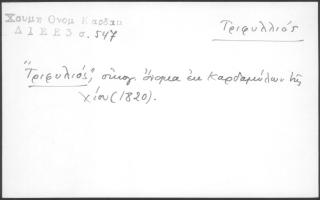 Χουμη Ονομ Καρδαμ
Δ Ι Ε Ε 3 σ. 547
Τριφυλλιός
"Τριφυλιός", οἰκογ. ὄνομα ἐκ Καρδαμύλων τῆς
Χίου (1820).